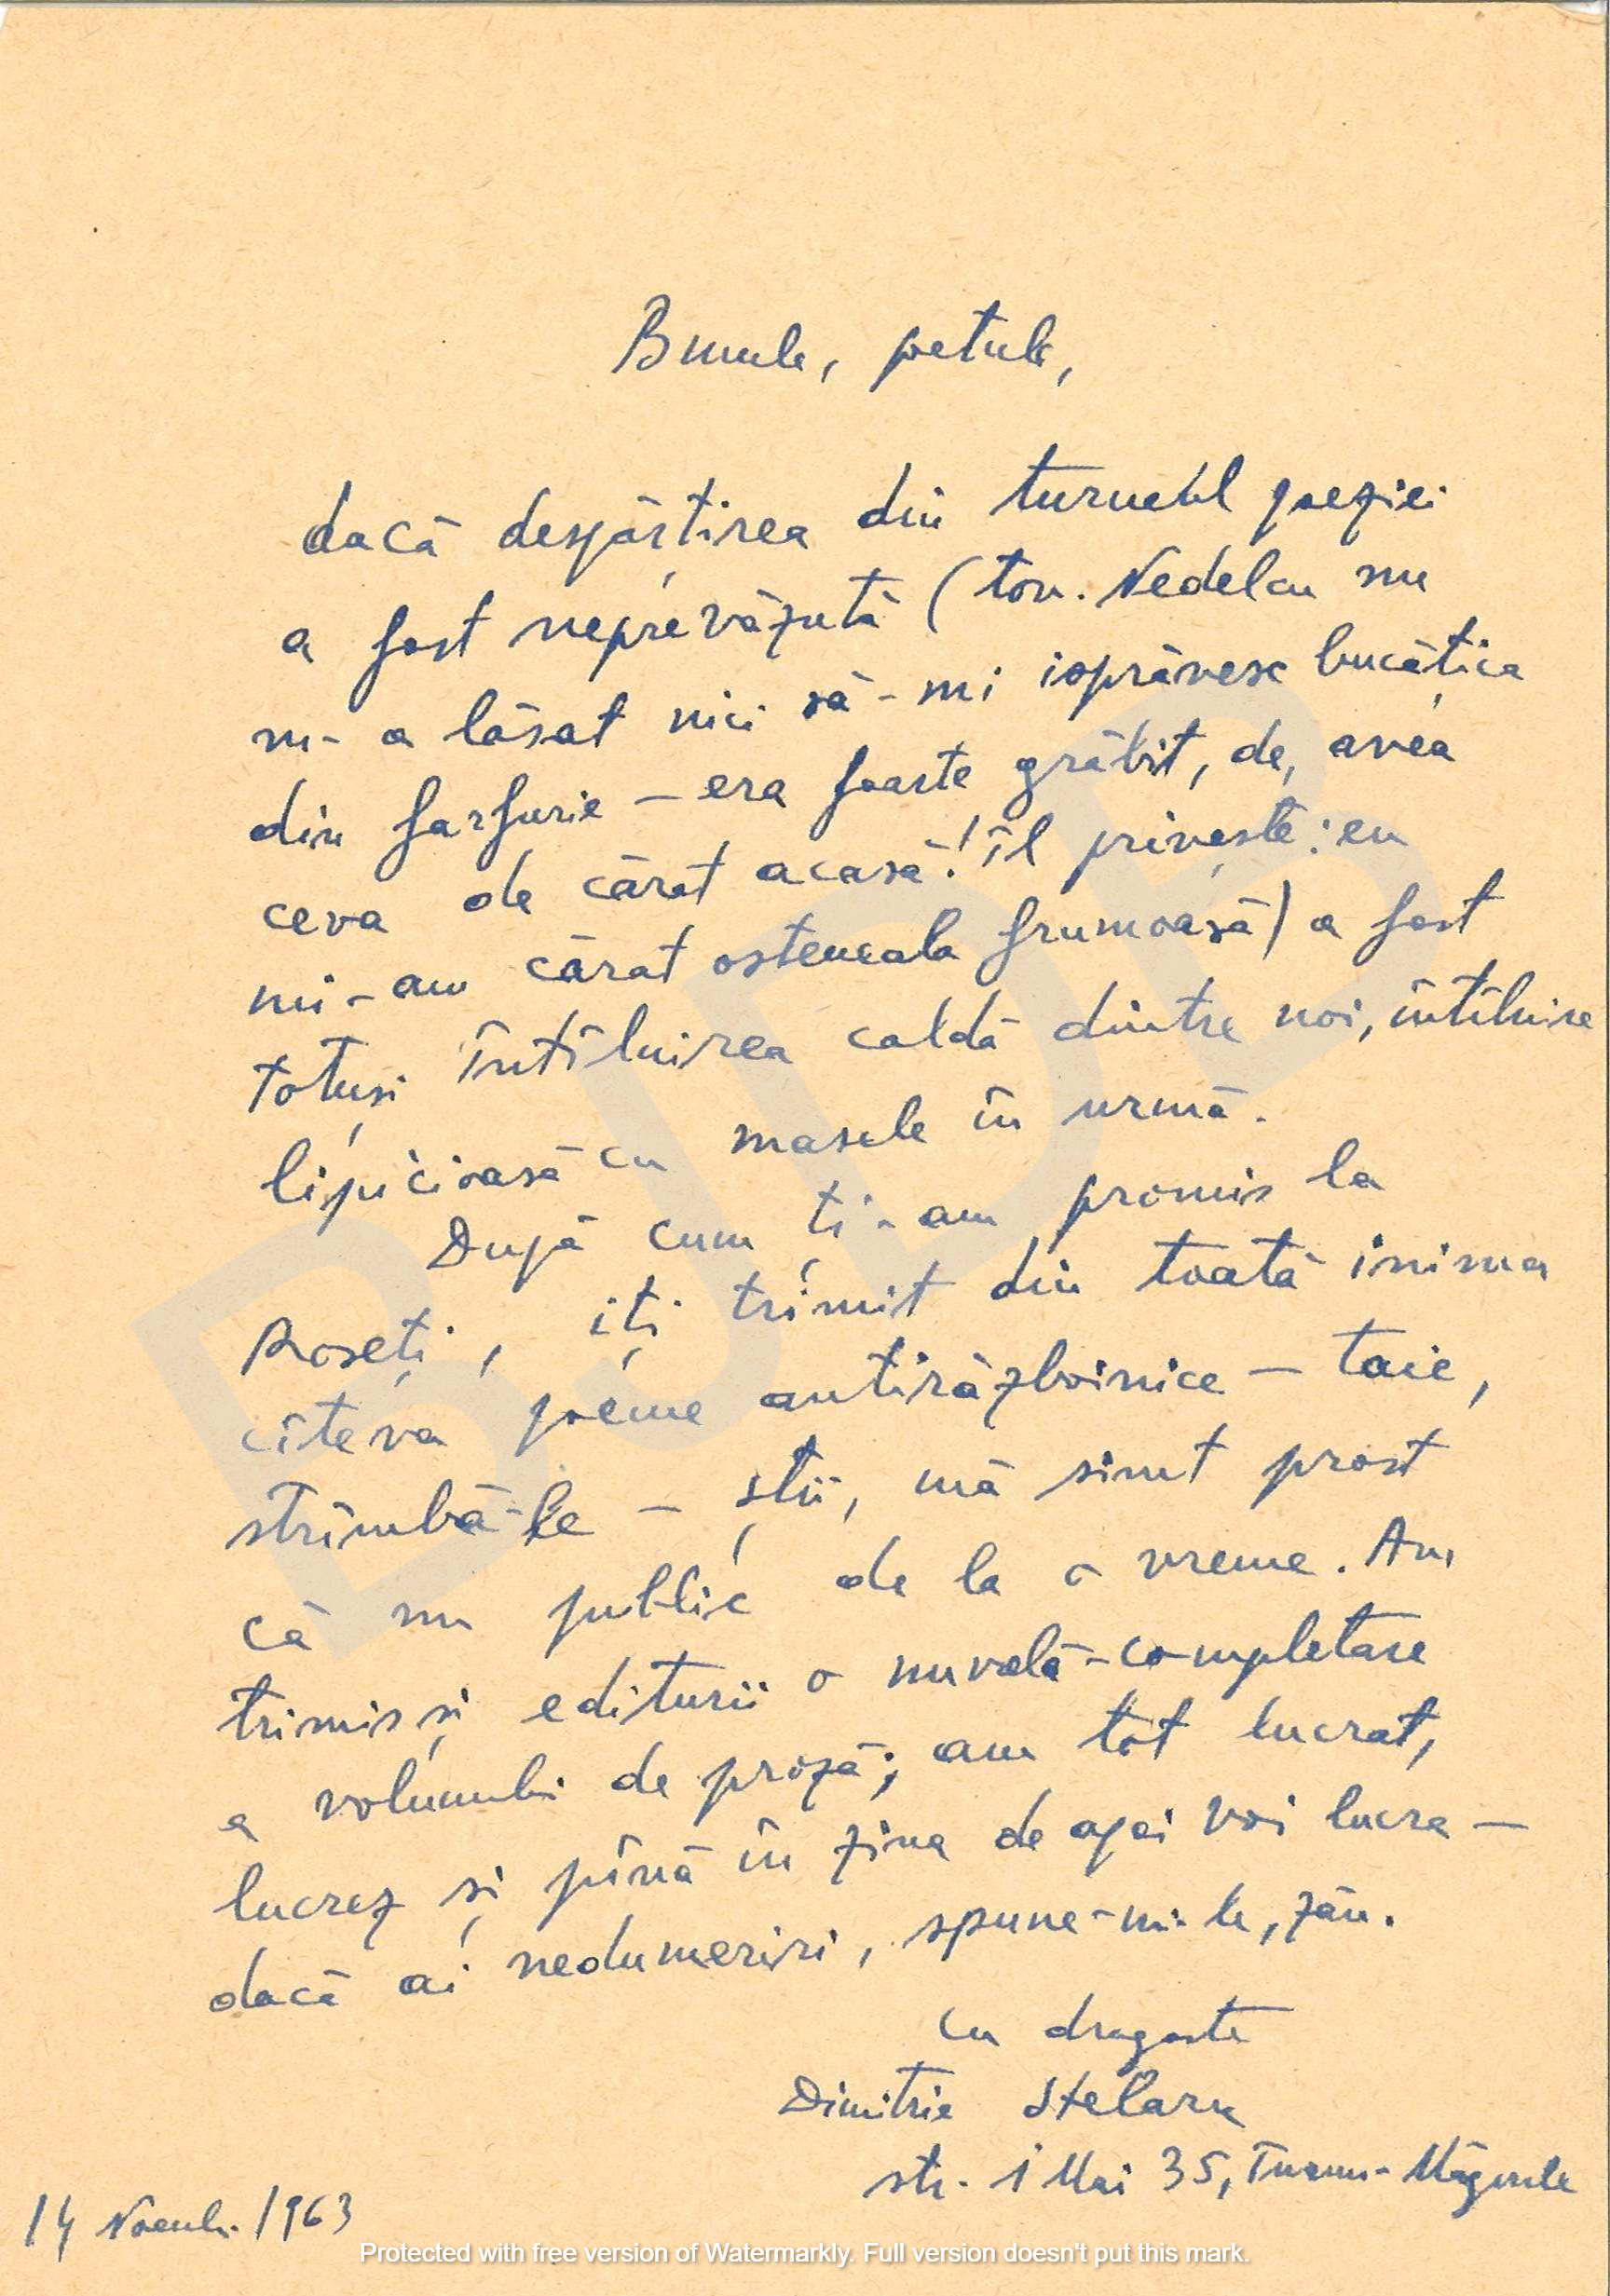 Bunule, poetule,
dacă despărțirea din turneul poeziei
a fost neprevăzută (tov. Nedelcu nu
m-a lăsat nici să-mi isprăvesc bucățica
din farfurie – era foarte grăbit, de, avea
ceva de cărat acasă! Îl privește: eu
mi-am cărat osteneala frumoasă) a fost
totuși întîlnirea caldă dintre noi, întîlnire
lipicioasă cu masele în urmă.
După cum ți-am promis la
Roseți, iți trimit din toată inima
cîteva poeme antirăzboinice – taie,
strîmbă-le – știi, mă simt prost
că nu public de la o vreme. Am
trimis și editurii o nuvelă-completare
a volumului de proză; am tot lucrat,
lucrez și pînă în ziua de apoi voi lucra –
dacă ai nedumeriri, spune-mi-le, zău.
Cu dragoste
Dimitrie Stelaru
str. 1 Mai 35, Turnu-Măgurele
14 Noemb. 1963
Protected with free version of Watermarkly. Full version doesn't put this mark.
BJDB